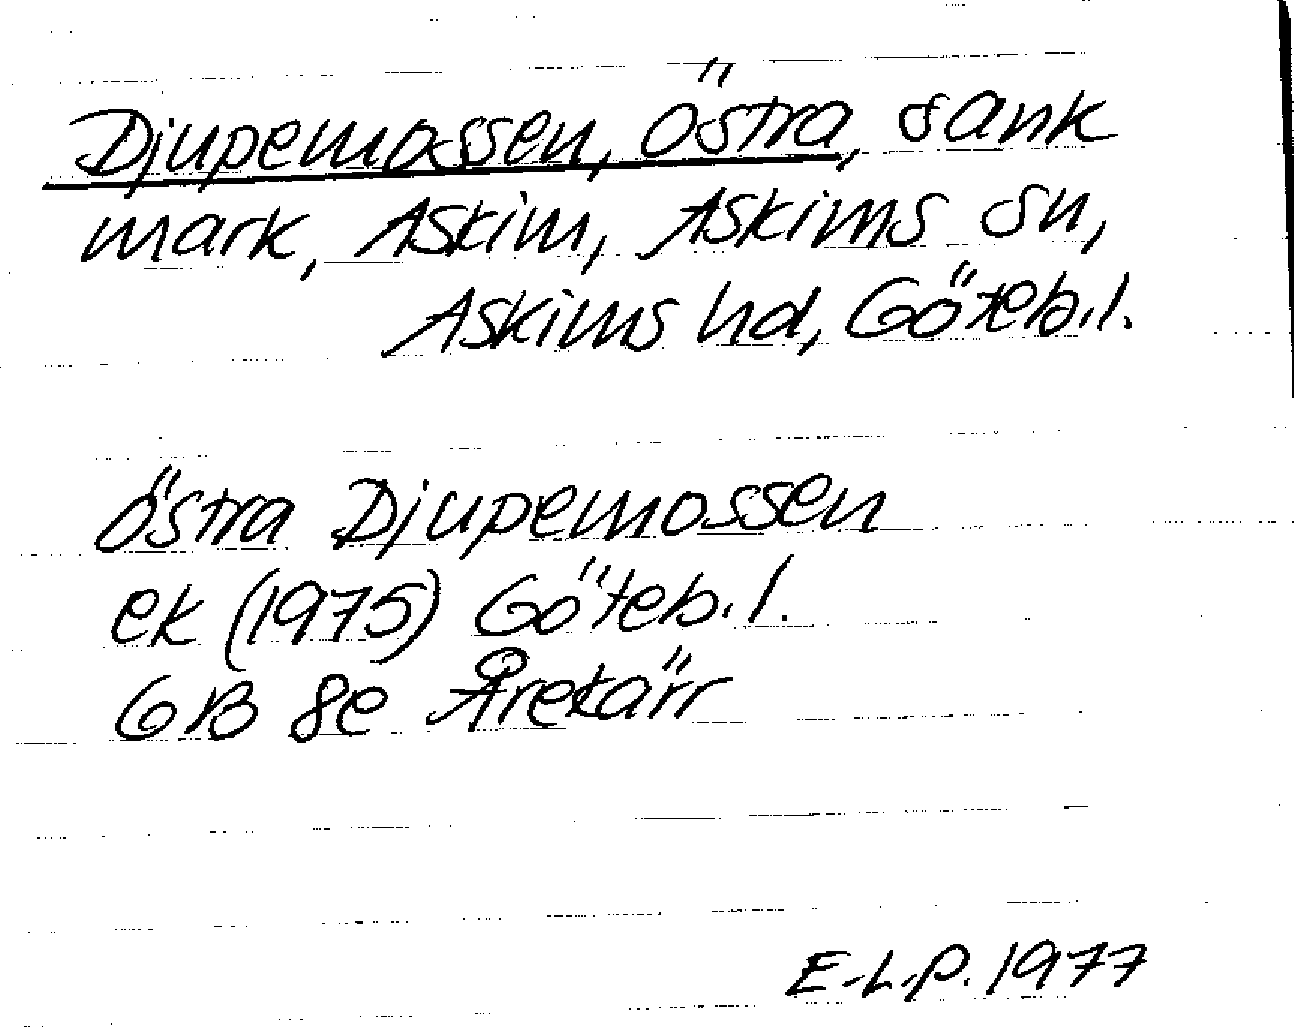 Djupemossen, östra, sank
mark, Askim, Askims sn,
Askims hd, Göteb.l.
östra Djupemossen
ek (1975) Göteb.l.
GB 8e Årekärr
E-L.P. 1977